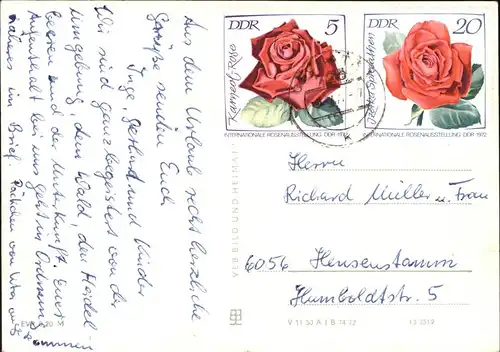 DDR 5
Karneol-Rose
INTERNATIONALE ROSENAUSSTELLUNG DDR 1972
DDR 20
INTERNATIONALE ROSENAUSSTELLUNG DDR 1972
Aus dem Urlaub recht herzliche
Grüße senden Euch
Inge, Gerhard und Kinder
Wir sind ganz begeistert von der
Umgebung, dem Wald, den Heidel-
beeren und der Unterkunft. Euer
Aufenthalt bei uns geht in Ordnung
näheres im Brief. Päckchen von
Herrn
Richard Müller u. Frau
6056 Heusenstamm
Humboldtstr. 5
VEB BILD UND HEIMAT
EVP 0,20 M
V 11 50 A 1 B 74/72